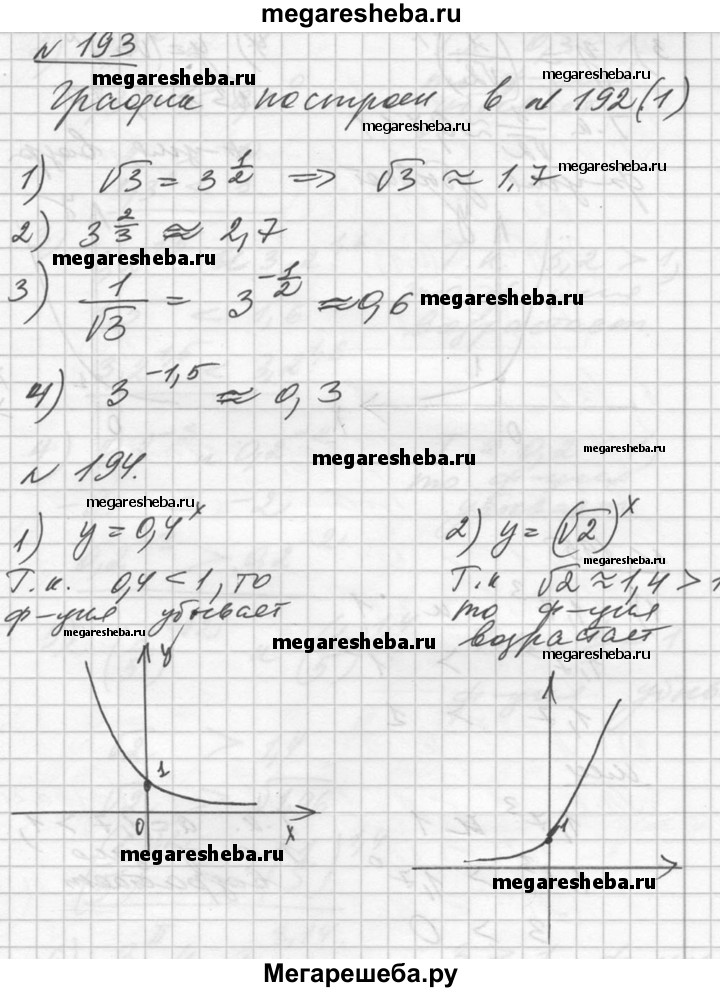 megaresheba.ru
№ 193
megaresheba.ru
megaresheba.ru
График построен в № 192(1)
megaresheba.ru
1) √3 = 3^{1/2} ⇒ √3 ≈ 1,7
megaresheba.ru
2) 3^{2/3} ≈ 2,7
megaresheba.ru
3) 1/√3 = 3^{-1/2} ≈ 0,6
megaresheba.ru
4) 3^{-1,5} ≈ 0,3
megaresheba.ru
megaresheba.ru
№ 194.
megaresheba.ru
1) y = 0,4^x
2) y = (√2)^x
megaresheba.ru
Т.к. 0,4 < 1, то
ф-ция убывает
Т.к √2 ≈ 1,4 > 1
то ф-ция
возрастает
megaresheba.ru
megaresheba.ru
megaresheba.ru
y
1
0
x
1
megaresheba.ru
megaresheba.ru
Мегарешеба.ру